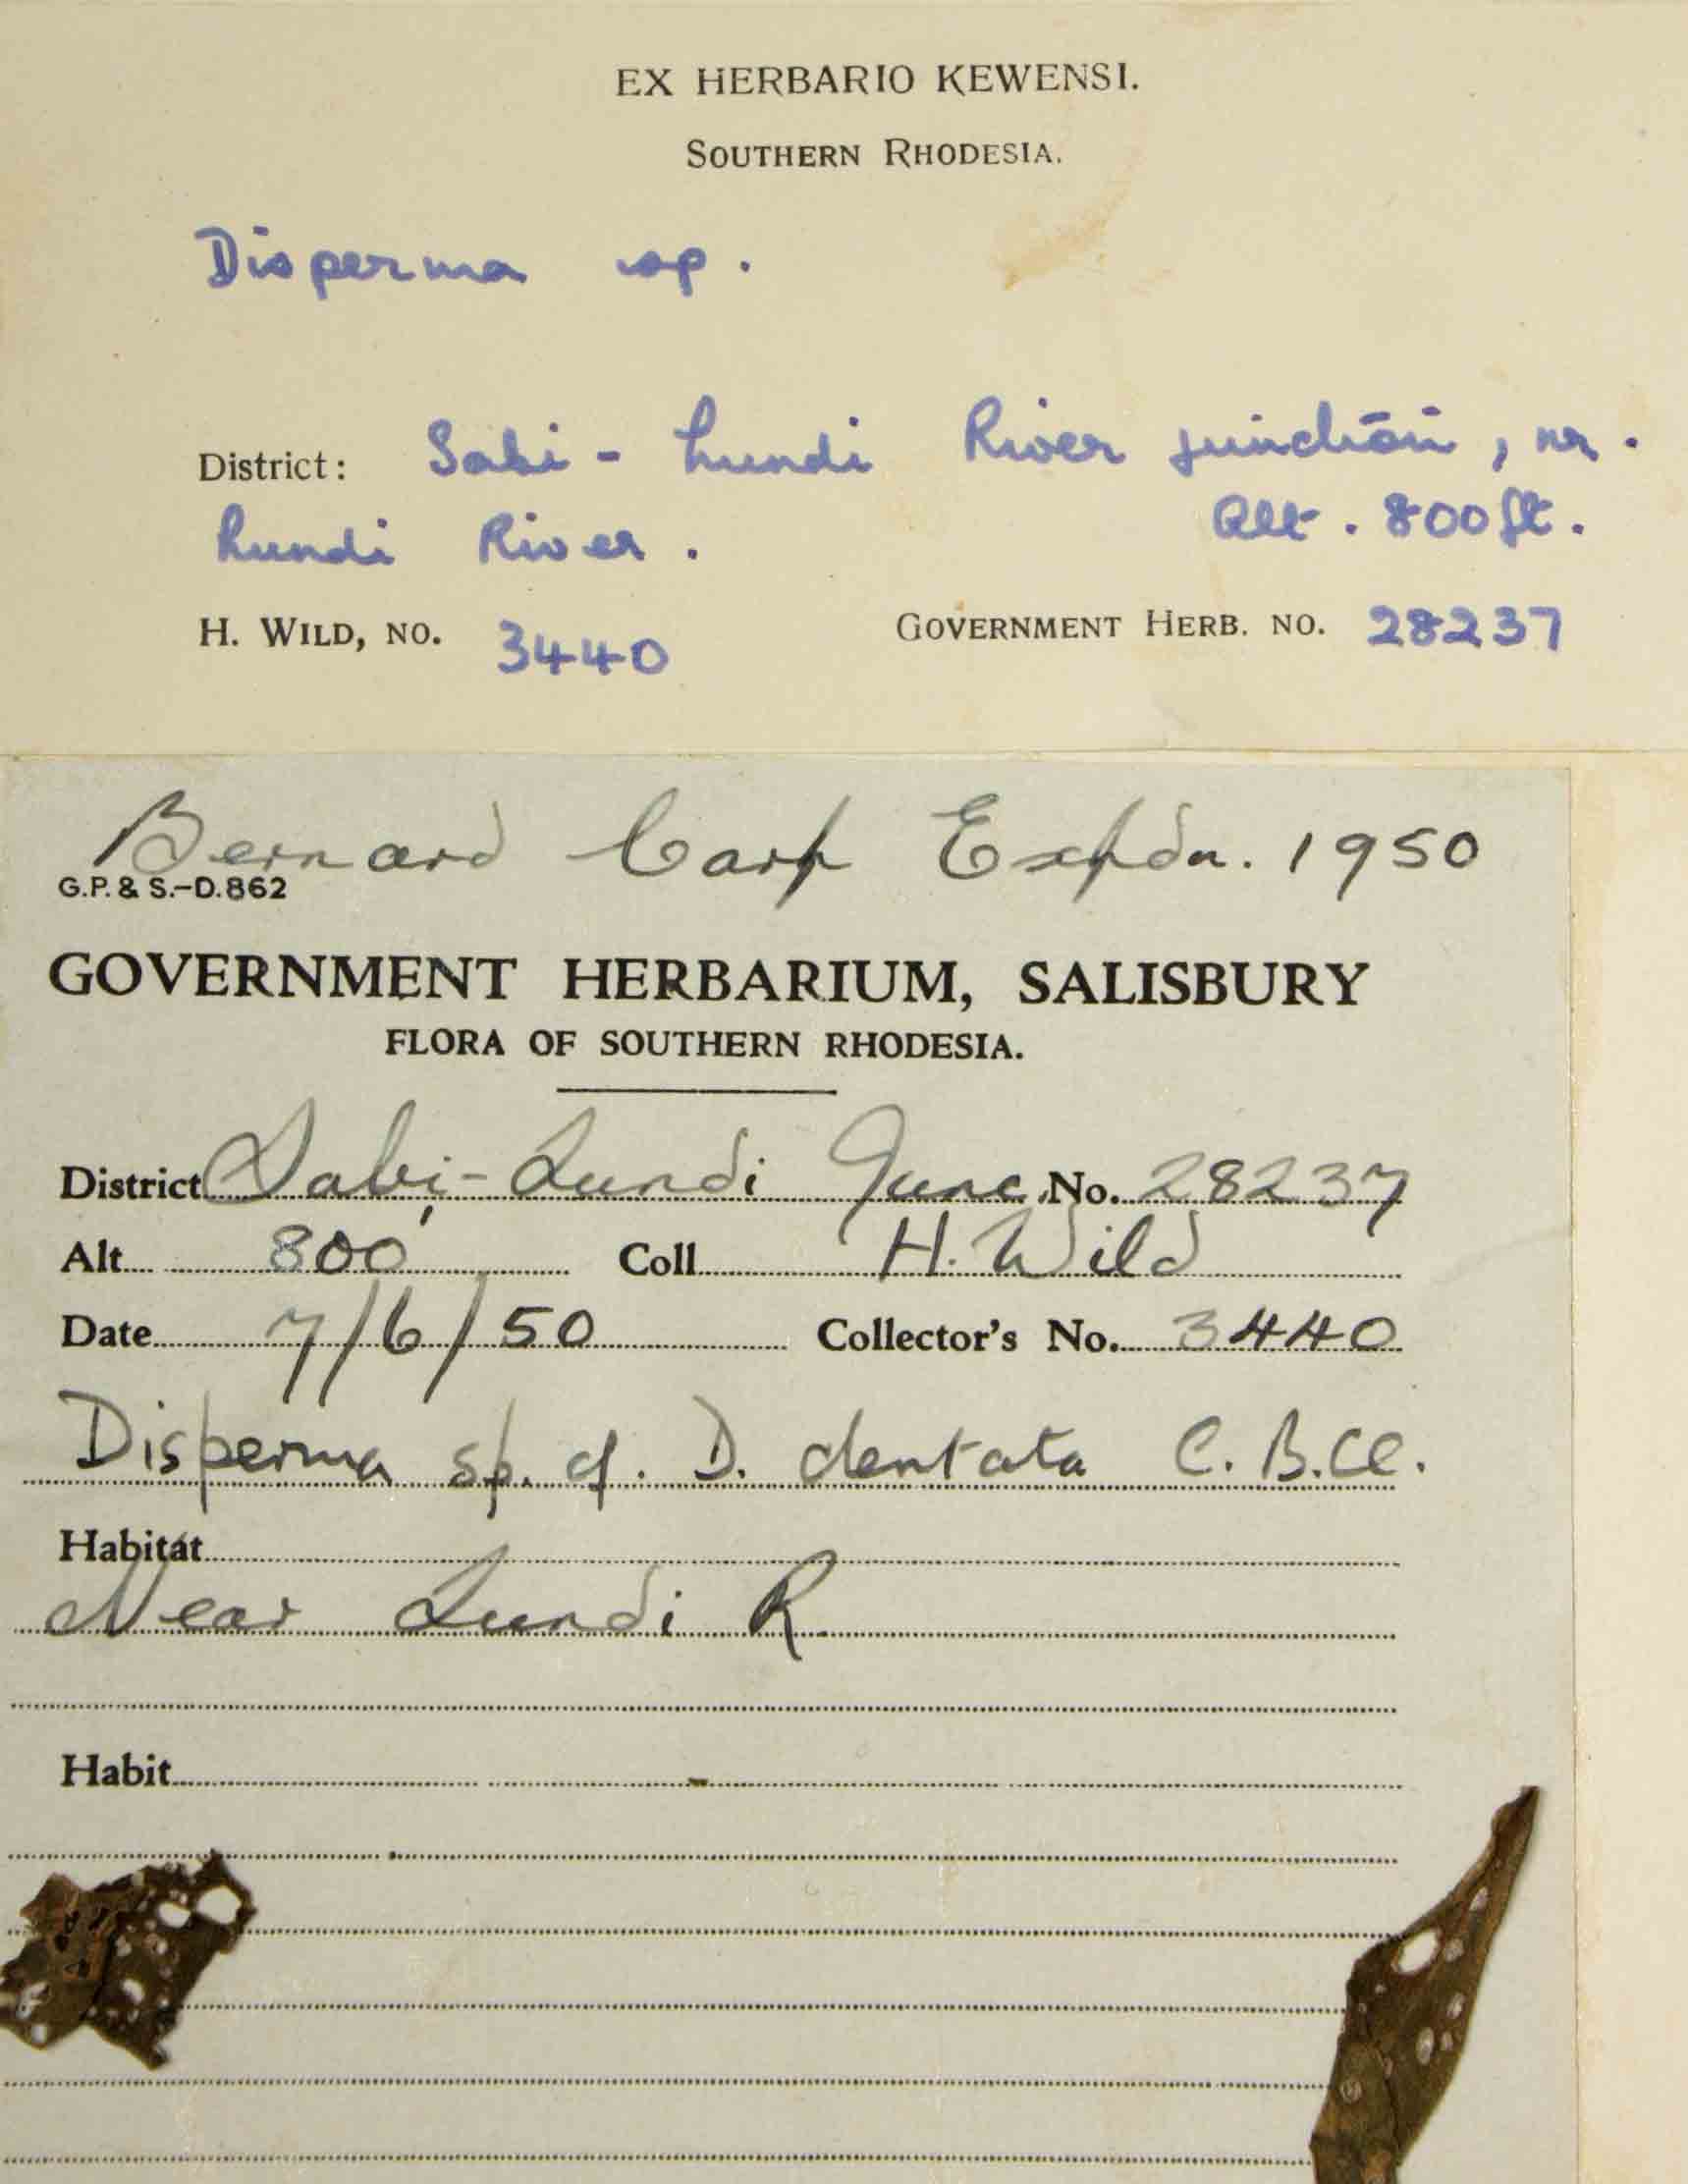 EX HERBARIO KEWENSI.
SOUTHERN RHODESIA.
Disperma sp.
District: Sabi - Lundi River junction, nr.
Lundi River. Alt. 800 ft.
H. WILD, NO. 3440 GOVERNMENT HERB. NO. 28237
Bernard Carp Expdn. 1950
G.P. & S.-D.862
GOVERNMENT HERBARIUM, SALISBURY
FLORA OF SOUTHERN RHODESIA.
District Sabi-Lundi Junc. No. 28237
Alt. 800' Coll. H. Wild
Date 7/6/50 Collector's No. 3440
Disperma sp. cf. D. dentata C.B.Cl.
Habitat
Near Lundi R.
Habit